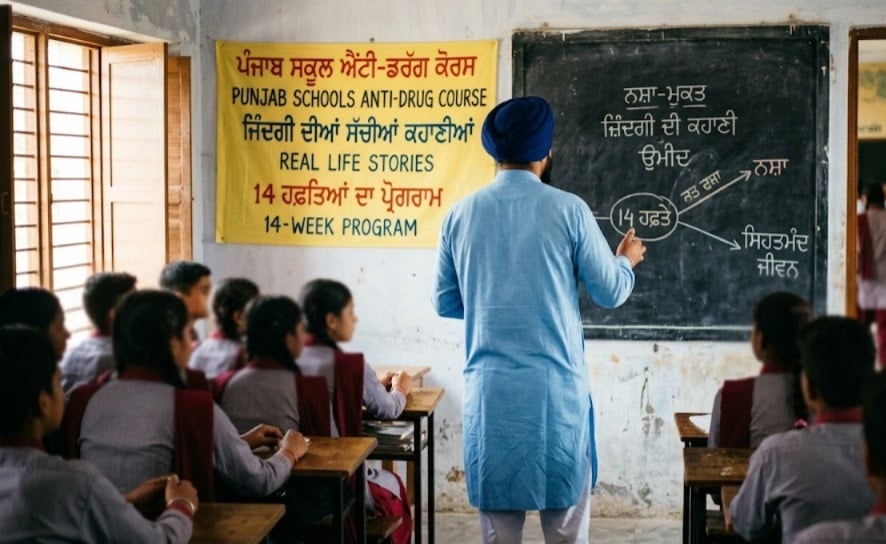 ਪੰਜਾਬ ਸਕੂਲ ਐਂਟੀ-ਡਰੱਗ ਕੋਰਸ
PUNJAB SCHOOLS ANTI-DRUG COURSE
ਜ਼ਿੰਦਗੀ ਦੀਆਂ ਸੱਚੀਆਂ ਕਹਾਣੀਆਂ
REAL LIFE STORIES
14 ਹਫ਼ਤਿਆਂ ਦਾ ਪ੍ਰੋਗਰਾਮ
14-WEEK PROGRAM
ਨਸ਼ਾ-ਮੁਕਤ
ਜ਼ਿੰਦਗੀ ਦੀ ਕਹਾਣੀ
ਉਮੀਦ
14 ਹਫ਼ਤੇ
ਨਸ਼ਾ
ਸਿਹਤਮੰਦ
ਜੀਵਨ